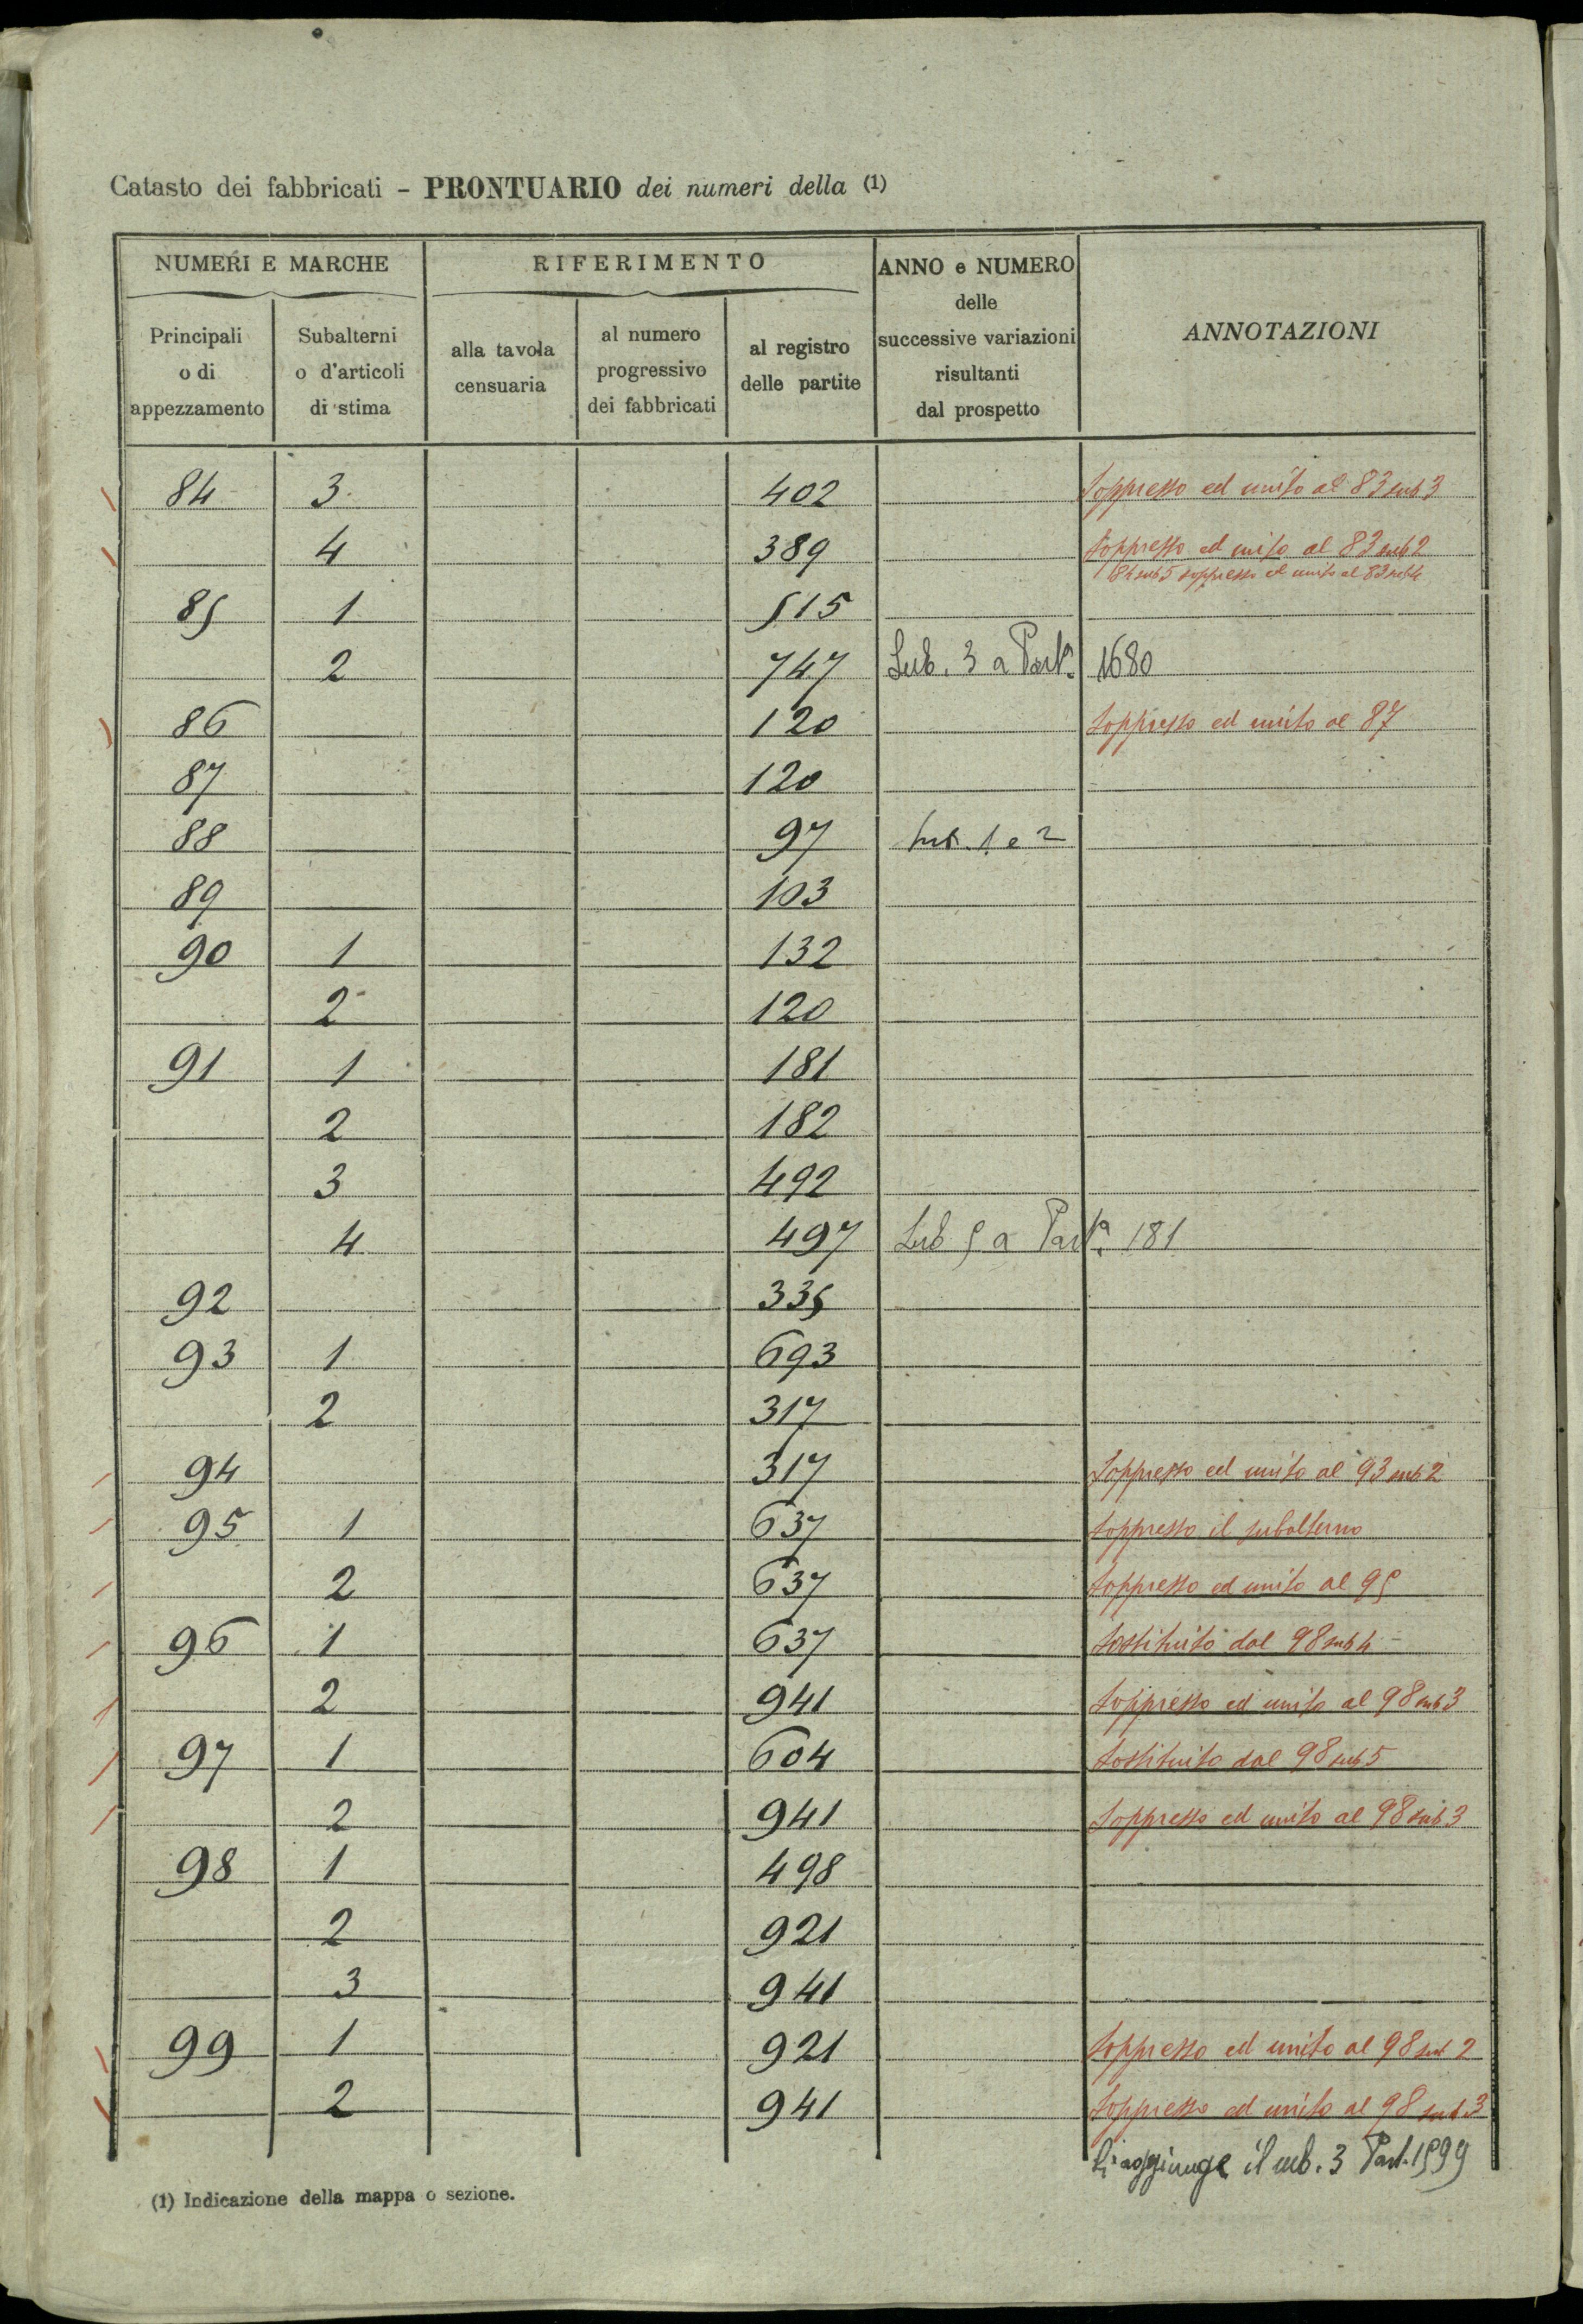 Catasto dei fabbricati - PRONTUARIO dei numeri della (1)
NUMERI E MARCHE RIFERIMENTO ANNO e NUMERO delle successive variazioni risultanti dal prospetto ANNOTAZIONI
Principali o di appezzamento Subalterni o d'articoli di stima alla tavola censuaria al numero progressivo dei fabbricati al registro delle partite
84 3 402 Soppresso ed unito al 83 sub 3
4 389 Soppresso ed unito al 83 sub 2
84 sub 5 soppresso ed unito al 83 sub 4
85 1 515
2 747 Sub. 3 a Parta. 1680
86 120 Soppresso ed unito al 87
87 120
88 97 Sub. 1 e 2
89 103
90 1 132
2 120
91 1 181
2 182
3 492
4 497 Sub 5 a Parta. 181
92 335
93 1 693
2 317
94 317 Soppresso ed unito al 93 sub 2
95 1 637 Soppresso il subalterno
2 637 Soppresso ed unito al 95
96 1 637 Sostituito dal 98 sub 4
2 941 Soppresso ed unito al 98 sub 3
97 1 604 Sostituito dal 98 sub 5
2 941 Soppresso ed unito al 98 sub 3
98 1 498
2 921
3 941
99 1 921 Soppresso ed unito al 98 sub 2
2 941 Soppresso ed unito al 98 sub 3
Si aggiunge il sub. 3 Part. 1599
(1) Indicazione della mappa o sezione.